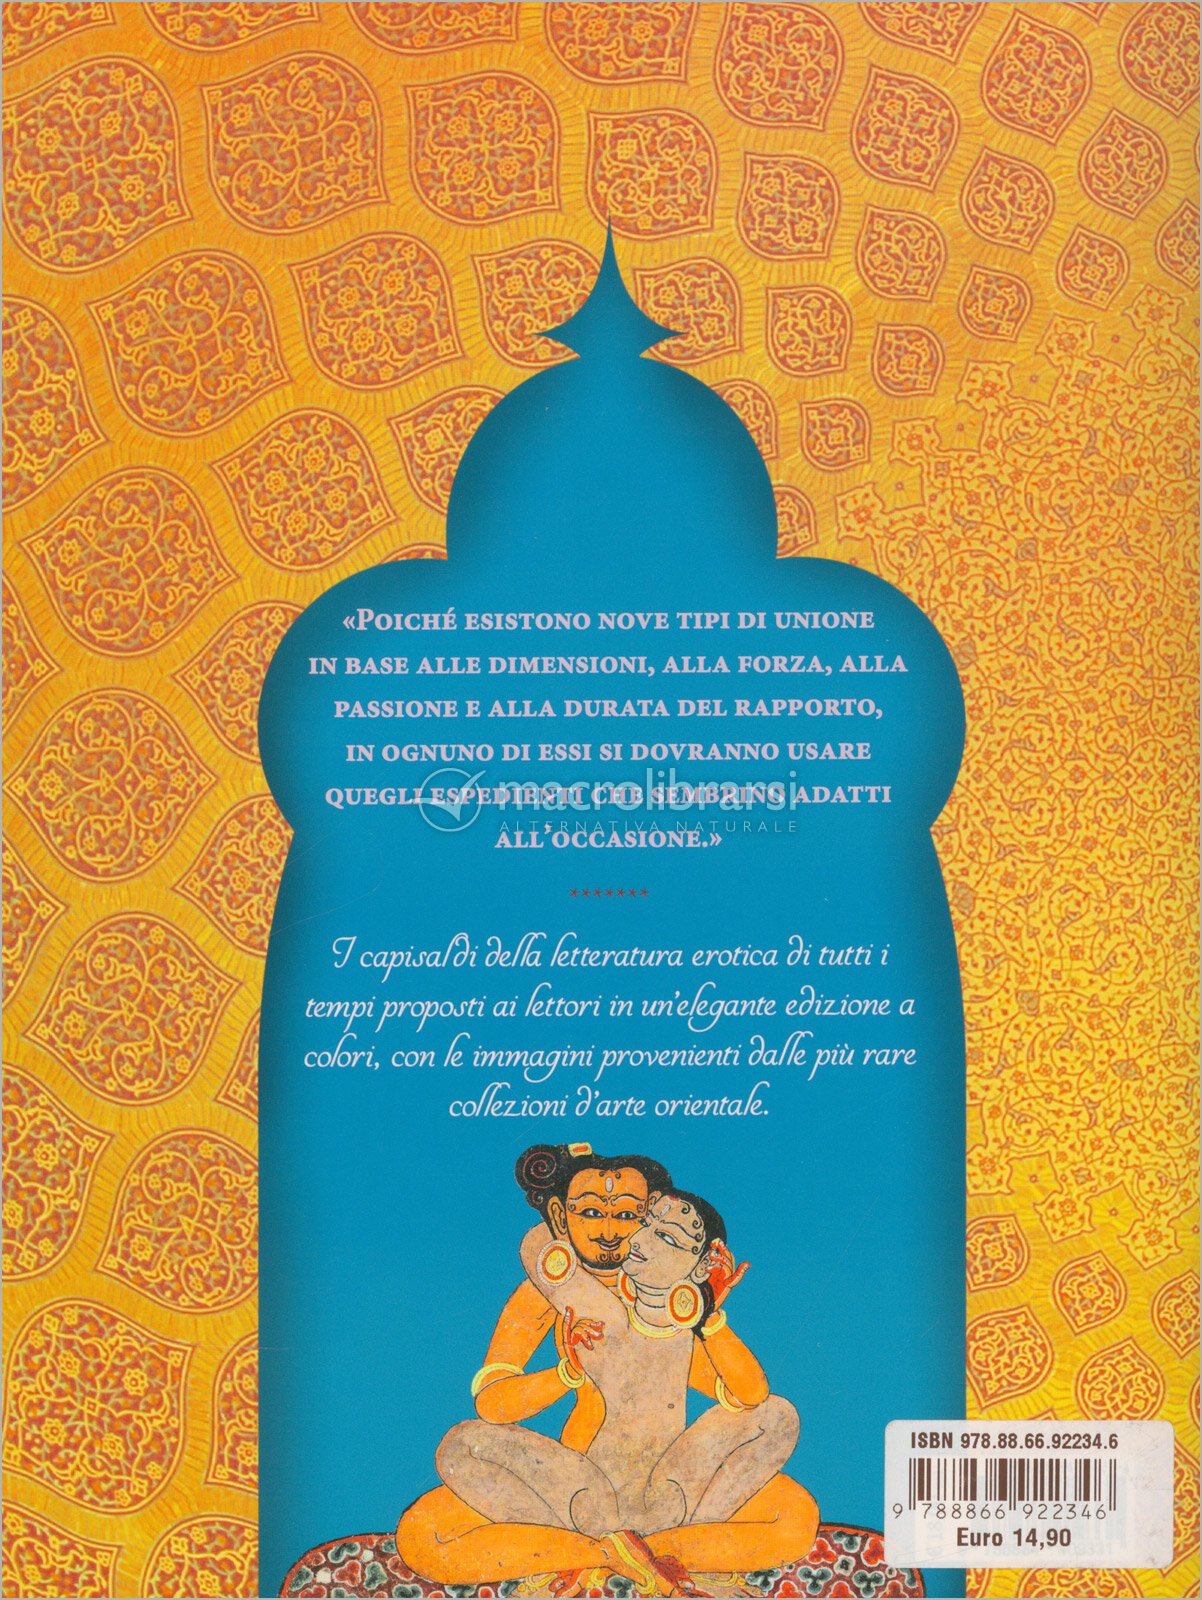 «Poiché esistono nove tipi di unione
in base alle dimensioni, alla forza, alla
passione e alla durata del rapporto,
in ognuno di essi si dovranno usare
quegli espedienti che sembrino adatti
all'occasione.»
macrolibrarsi
ALTERNATIVA NATURALE
*******
I capisaldi della letteratura erotica di tutti i
tempi proposti ai lettori in un'elegante edizione a
colori, con le immagini provenienti dalle più rare
collezioni d'arte orientale.
ISBN 978.88.66.92234.6
9 788866 922346
Euro 14,90